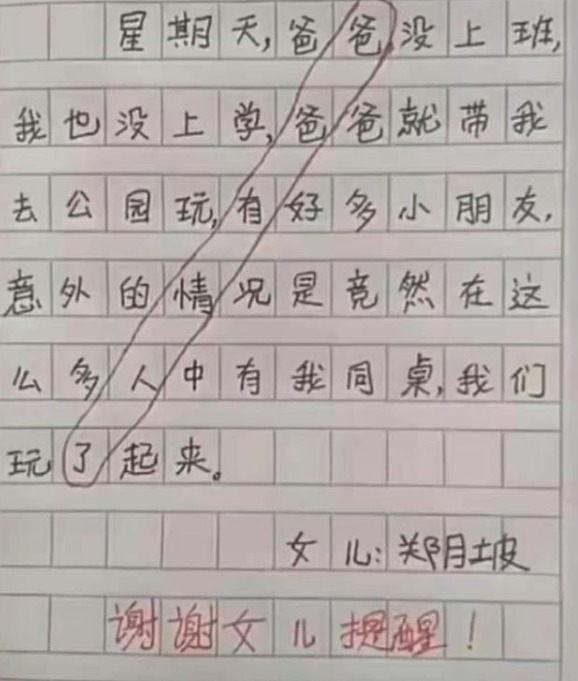 星期天,爸爸没上班,
我也没上学,爸爸就带我
去公园玩,有好多小朋友,
意外的情况是竟然在这
么多人中有我同桌,我们
玩了起来。
女儿:郑月坡
谢谢女儿提醒!